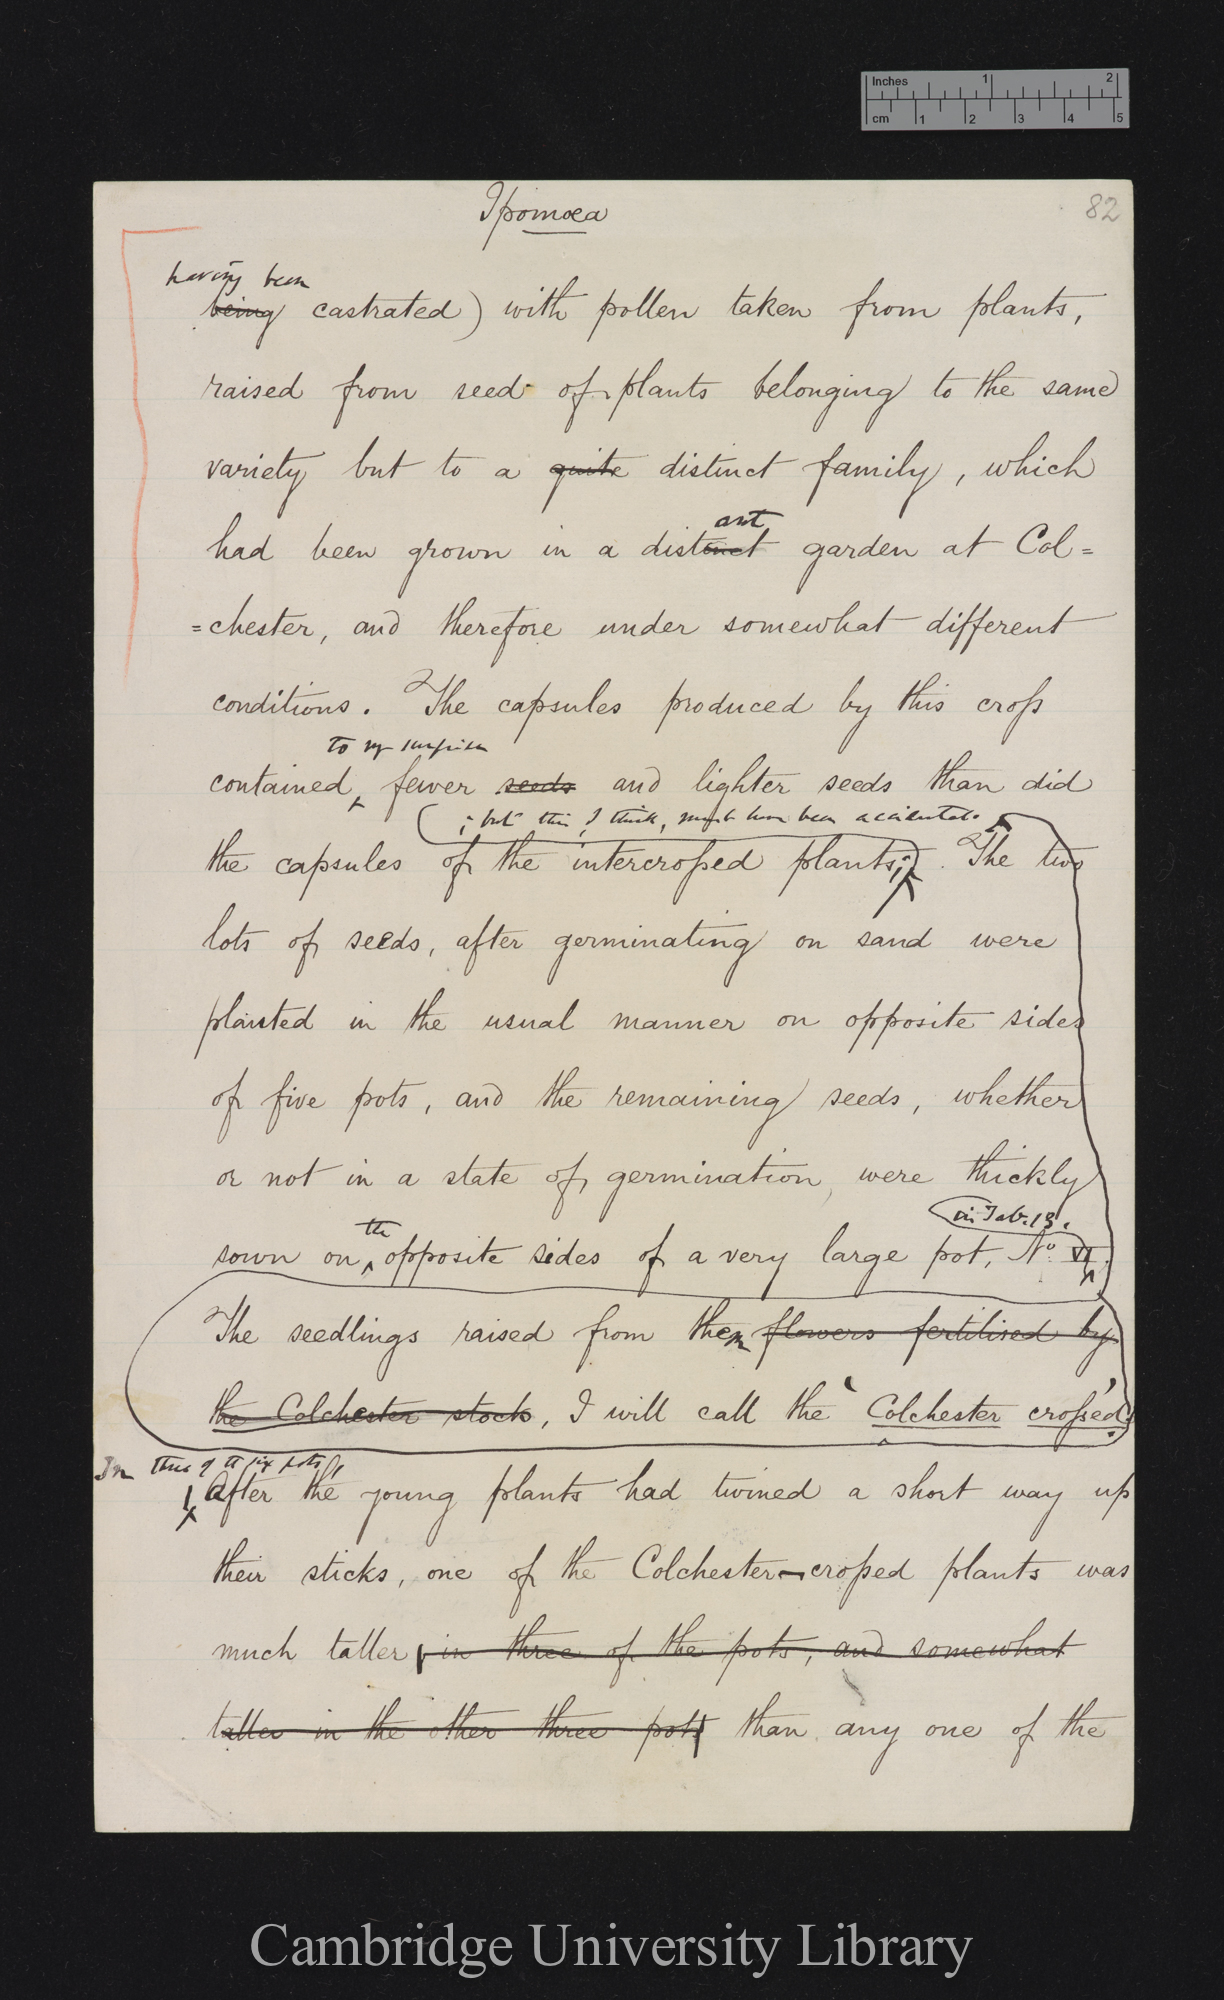 Inches 1 2
cm 1 2 3 4 5
Ipomoea
82
having been
being castrated) with pollen taken from plants,
raised from seed of plants belonging to the same
variety but to a quite distinct family, which
ant
had been grown in a distinct garden at Col=
=chester, and therefore under somewhat different
conditions. The capsules produced by this cross
to my surprise
contained fewer seeds and lighter seeds than did
; but this, I think, must have been accidental.
the capsules of the intercrossed plants; The two
lots of seeds, after germinating on sand were
planted in the usual manner on opposite sides
of five pots, and the remaining seeds, whether
or not in a state of germination, were thickly
the
in Tab. 13.
sown on opposite sides of a very large pot, No VI.
The seedlings raised from them flowers fertilised by
the Colchester stock, I will call the ‘Colchester crossed’.
In three of the six pots,
After the young plants had twined a short way up
their sticks, one of the Colchester-crossed plants was
much taller, in three of the pots, and somewhat
taller in the other three pots than any one of the
Cambridge University Library